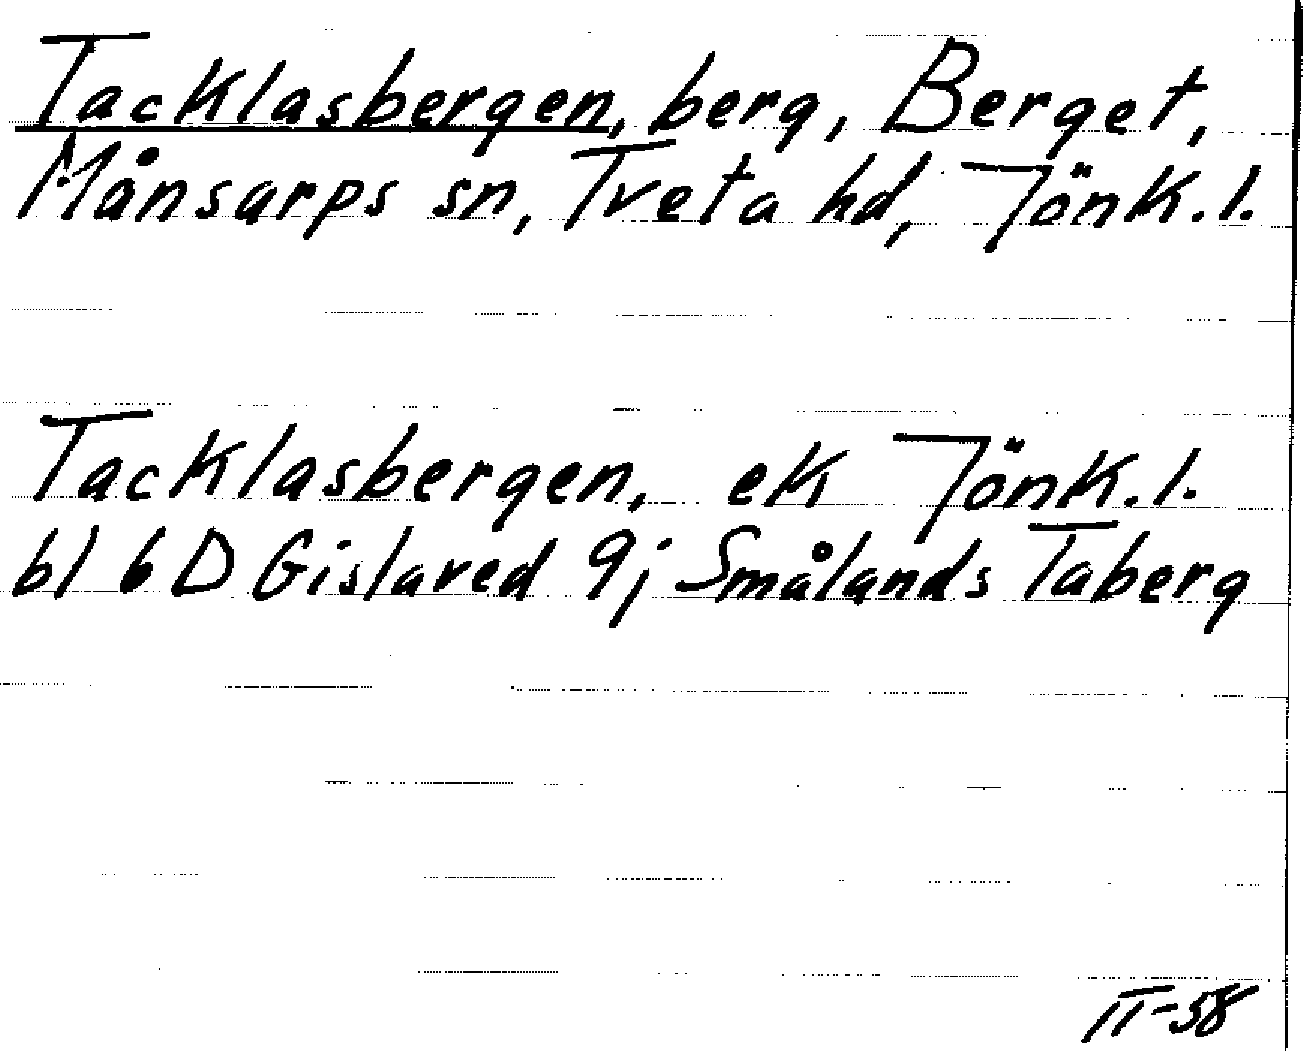 Tacklasbergen, berg, Berget,
Månsarps sn, Tveta hd, Jönk.l.
Tacklasbergen, ek Jönk.l.
bl 6D Gislaved 9j Smålands Taberg
II-58